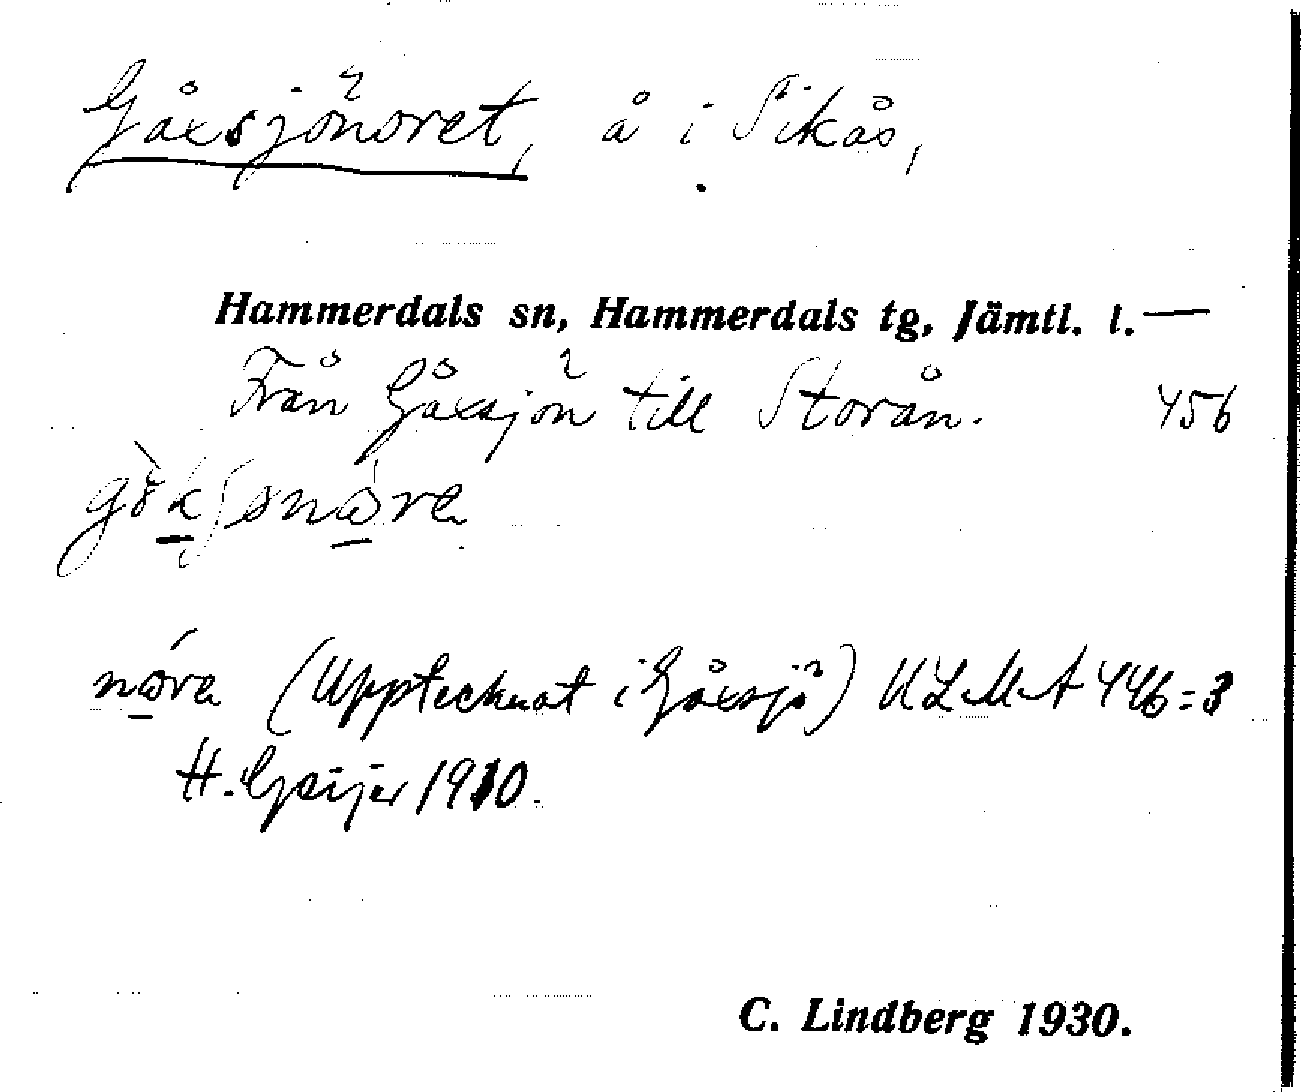 Gåxsjönoret, å i Sikås,
Hammerdals sn, Hammerdals tg, Jämtl. l. —
Från Gåxsjön till Storån. 456
nóra (Upptecknat i Gåxsjö) ULMA 446:3
H. Geijer 1910.
C. Lindberg 1930.